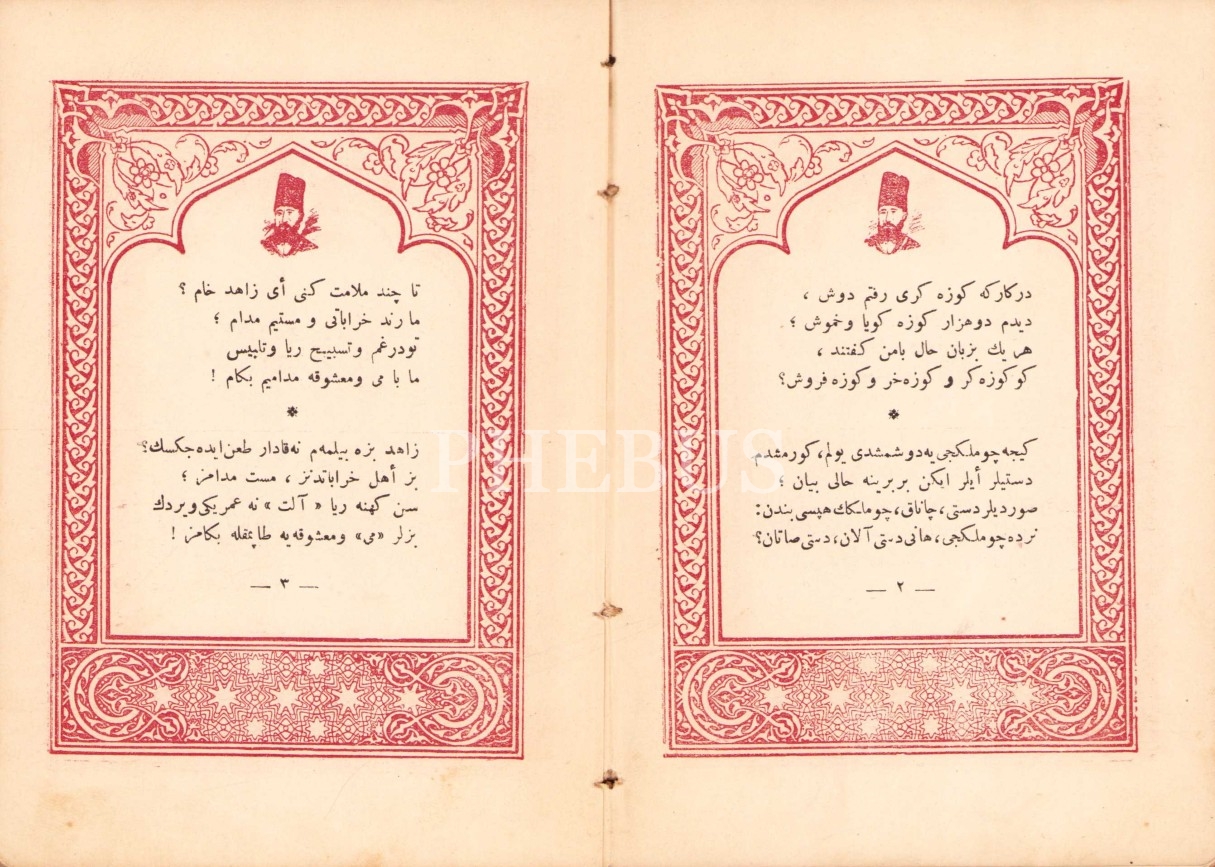 درکارکه کوزه کری رفتم دوش ،
دیدم دوهزار کوزه کویا وخموش ؛
هر یك بزبان حال بامن کفتند ،
کو کوزه کر و کوزه خر و کوزه فروش؟
کیجه چوملکجی یه دوشمشدی یولم، کورمشدم
دستیلر أیلر ایکن بربرینه حالی بیان ؛
صوردیلر دستی، چاناق، چوملكك هپسی بندن:
نرده چوملکجی، هانی دستی آلان، دستی صاتان؟
— ٢ —
تا چند ملامت کنی أی زاهد خام ؟
ما رند خراباتی و مستیم مدام ؛
تودرغم وتسبیح ریا وتلبیس
ما با می ومعشوقه مدامیم بکام !
زاهد بزه بیلمه‌م نه‌قادار طعن ایده‌جکسك؟
بز أهل خراباتدنز ، مست مدامز ؛
سن کهنه ریا « آلت » نه عمریکی ویردك
بزلر «می» ومعشوقه‌یه طاپمقله بکامز !
— ٣ —
PHEBUS